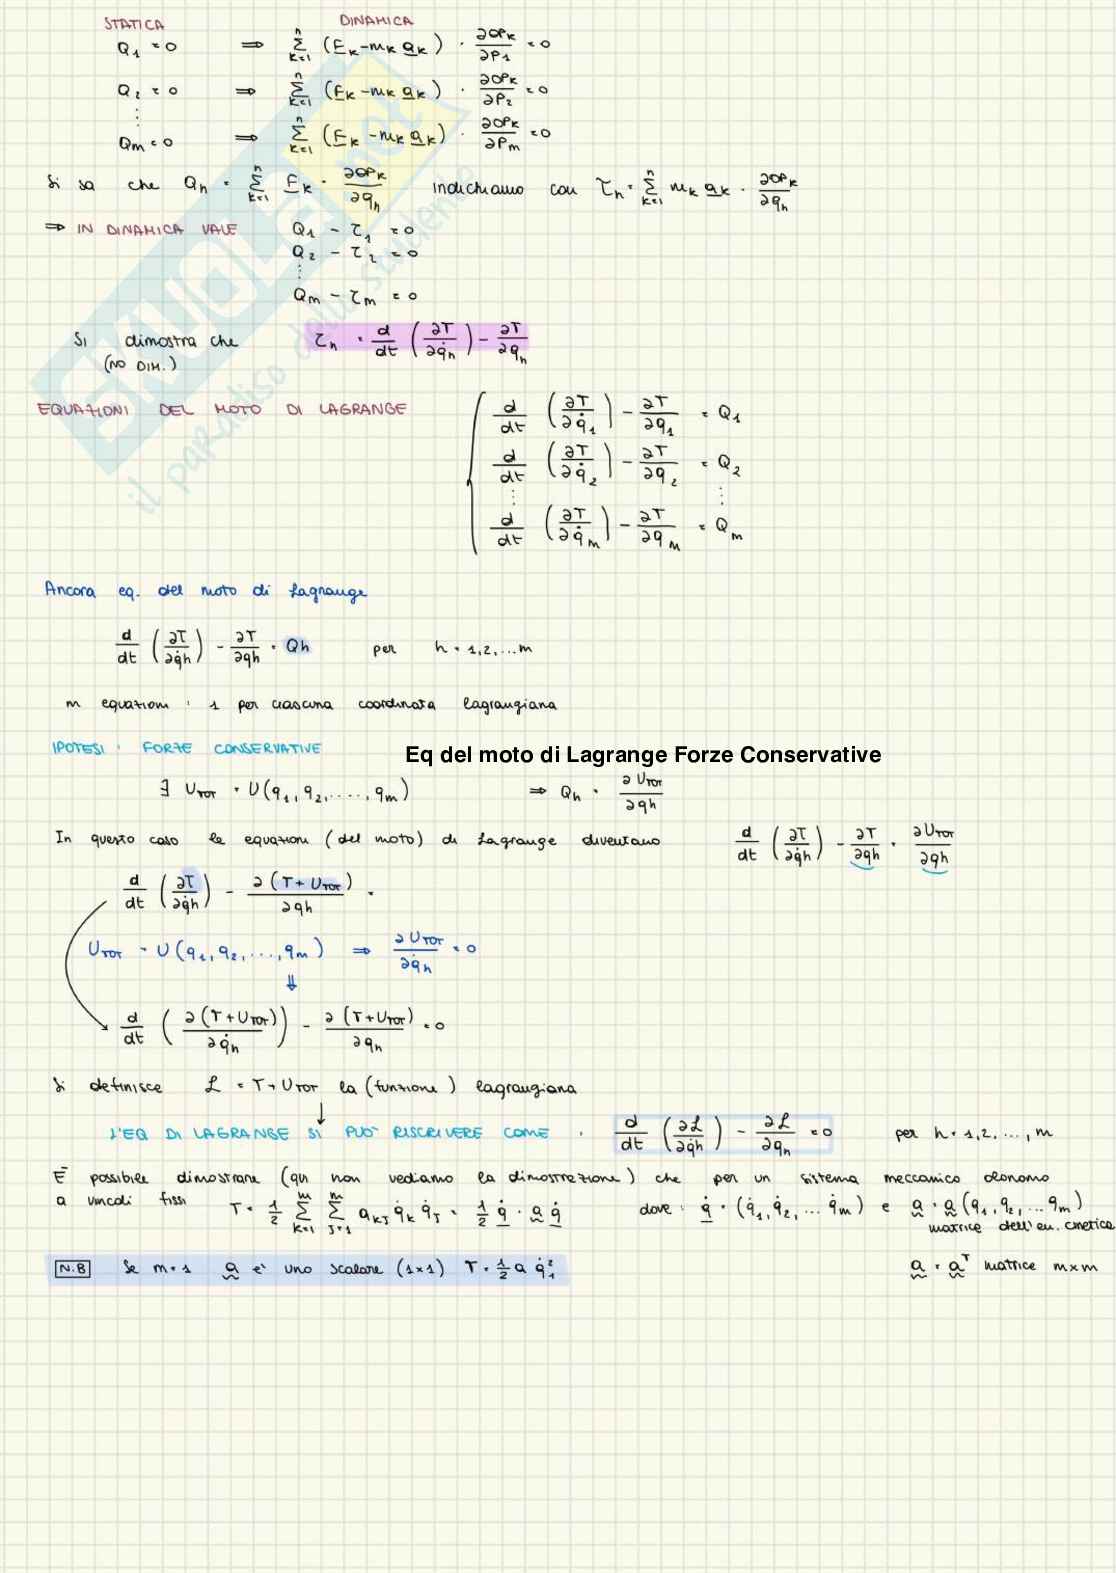 STATICA DINAMICA
Q₁ = 0 ⟹ Σ_{k=1}^{n} (F̲_k - m_k a̲_k) · ∂OP_k/∂P₁ = 0
Q₂ = 0 ⟹ Σ_{k=1}^{n} (F̲_k - m_k a̲_k) · ∂OP_k/∂P₂ = 0
⋮
Q_m = 0 ⟹ Σ_{k=1}^{n} (F̲_k - m_k a̲_k) · ∂OP_k/∂P_m = 0
Si sa che Q_h = Σ_{k=1}^{n} F̲_k · ∂OP_k/∂q_h indichiamo con τ_h = Σ_{k=1}^{n} m_k a̲_k · ∂OP_k/∂q_h
⟹ IN DINAMICA VALE Q₁ - τ₁ = 0
Q₂ - τ₂ = 0
⋮
Q_m - τ_m = 0
Si dimostra che τ_h = d/dt (∂T/∂q̇_h) - ∂T/∂q_h
(NO DIM.)
EQUAZIONI DEL MOTO DI LAGRANGE { d/dt (∂T/∂q̇₁) - ∂T/∂q₁ = Q₁
d/dt (∂T/∂q̇₂) - ∂T/∂q₂ = Q₂
⋮ ⋮
d/dt (∂T/∂q̇_m) - ∂T/∂q_m = Q_m
Ancora eq. del moto di Lagrange
d/dt (∂T/∂q̇h) - ∂T/∂qh = Qh per h = 1,2,...m
m equazioni : 1 per ciascuna coordinata lagrangiana
IPOTESI : FORZE CONSERVATIVE Eq del moto di Lagrange Forze Conservative
∃ U_TOT = U(q₁, q₂, ...., q_m) ⟹ Q_h = ∂U_TOT/∂qh
In questo caso le equazioni (del moto) di Lagrange diventano d/dt (∂T/∂q̇h) - ∂T/∂qh = ∂U_TOT/∂qh
d/dt (∂T/∂q̇h) - ∂(T + U_TOT)/∂qh =
U_TOT = U(q₁, q₂, ..., q_m) ⟹ ∂U_TOT/∂q̇_h = 0
⇓
d/dt (∂(T + U_TOT)/∂q̇_h) - ∂(T + U_TOT)/∂q_h = 0
Si definisce ℒ = T + U_TOT la (funzione) lagrangiana
↓
L'EQ DI LAGRANGE SI PUÒ RISCRIVERE COME : d/dt (∂ℒ/∂q̇h) - ∂ℒ/∂q_h = 0 per h = 1,2, ..., m
È possibile dimostrare (qui non vediamo la dimostrazione) che per un sistema meccanico olonomo
a vincoli fissi T = 1/2 Σ_{k=1}^{m} Σ_{J=1}^{m} a_{kJ} q̇_k q̇_J = 1/2 q̲̇ · a̰ q̲̇ dove : q̲̇ = (q̇₁, q̇₂, ... q̇_m) e a̰ = a̰(q₁, q₂, ... q_m)
matrice dell'en. cinetica
N.B Se m = 1 a̰ è uno scalare (1x1) T = 1/2 a q̇₁² a̰ = a̰ᵀ matrice m x m
SKUOLA.net
il paradiso dello studente